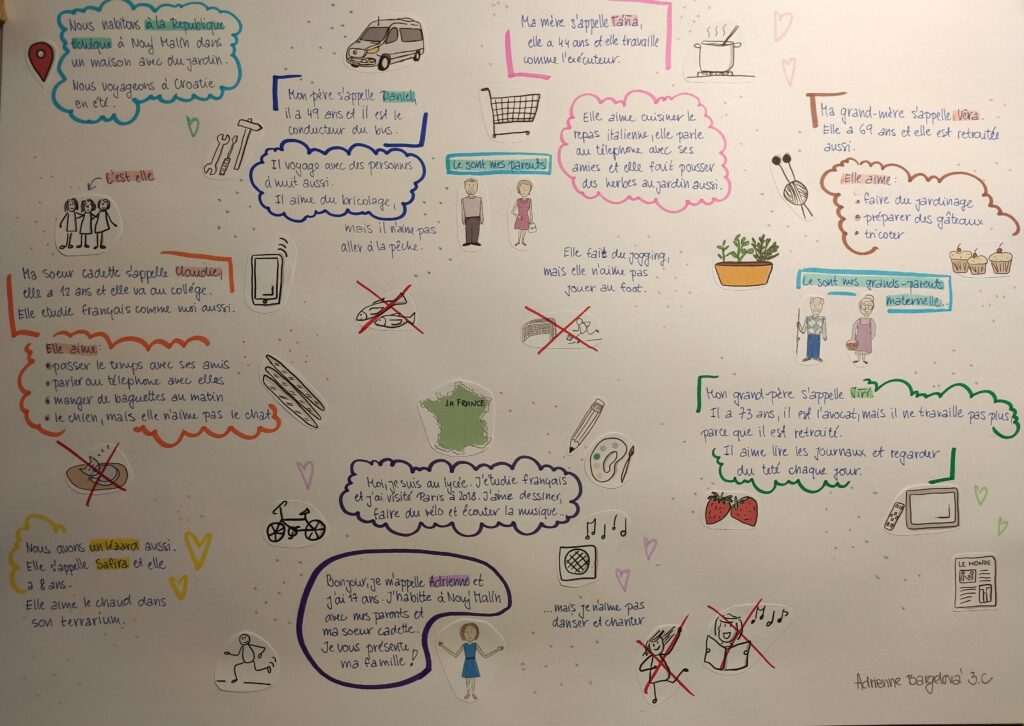 Nous habitons à la Republique
tchèque à Nový Malín dans
un maison avec du jardin.
Nous voyageons à Croatie
en été.
Ma mère s'appelle Táňa,
elle a 44 ans et elle travaille
comme l'exécuteur.
Mon père s'appelle Daniel,
il a 49 ans et il est le
conducteur du bus.
Il voyage avec des personnes
à nuit aussi.
Il aime du bricolage,
mais il n'aime pas
aller à la pêche.
Ce sont mes parents
Elle aime cuisiner le
repas italienne, elle parle
au téléphone avec ses
amies et elle fait pousser
des herbes au jardin aussi.
Elle fait du jogging,
mais elle n'aime pas
jouer au foot.
Ma grand-mère s'appelle Věra.
Elle a 69 ans et elle est retraitée
aussi.
Elle aime:
• faire du jardinage
• préparer des gâteaux
• tricoter
Ce sont mes grands-parents
maternelle...
C'est elle
Ma soeur cadette s'appelle Claudie,
elle a 12 ans et elle va au collégé.
Elle etudie français comme moi aussi.
Elle aime:
• passer le temps avec ses amis
• parler au téléphone avec elles
• manger de baguettes au matin
• le chien, mais elle n'aime pas le chat
LA FRANCE
Mon grand-père s'appelle Jiří.
Il a 73 ans, il est l'avocat, mais il ne travaille pas plus,
parce que il est retraité.
Il aime lire les journaux et regarder
du teté chaque jour.
Moi, je suis au lycée. J'étudie français
et j'ai visité Paris à 2018. J'aime dessiner,
faire du vélo et écouter la musique...
...mais je n'aime pas
danser et chanter
Nous avons un lézard aussi.
Elle s'appelle Safira et elle
a 8 ans.
Elle aime le chaud dans
son terrarium.
Bonjour, je m'appelle Adrienne et
j'ai 17 ans. J'habitte à Nový Malín
avec mes parents et
ma soeur cadette.
Je vous présente
ma famille!
LE MONDE
Adrienne Bargelová 3.C